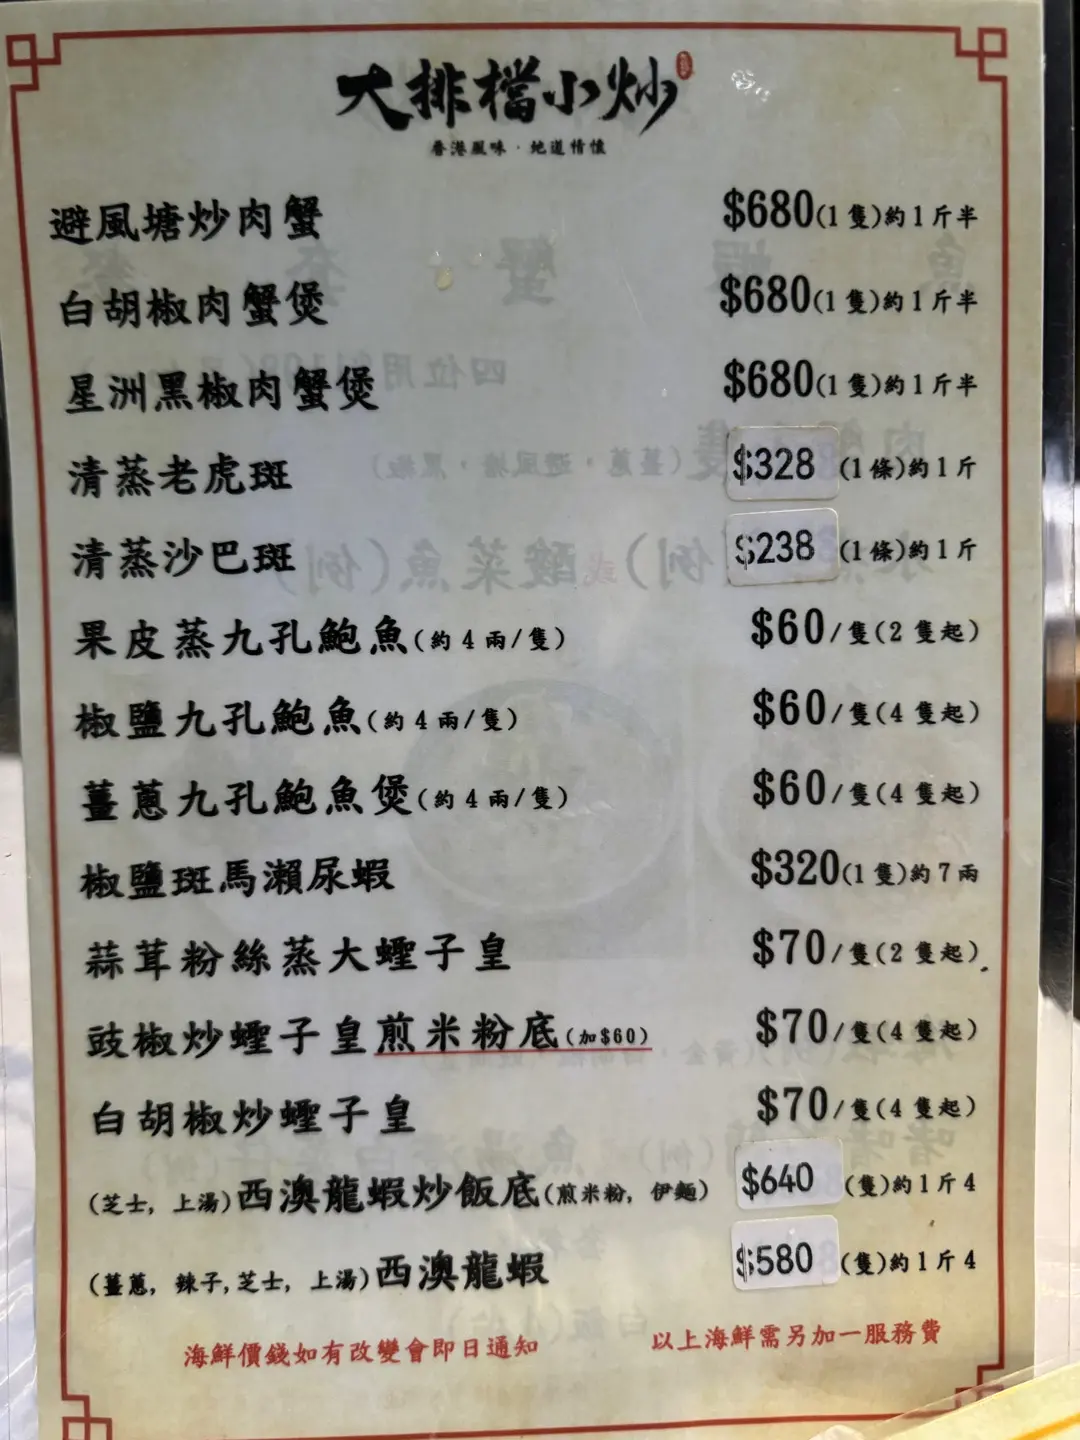 大排檔小炒
香港風味·地道情懷
避風塘炒肉蟹 $680(1隻)約1斤半
白胡椒肉蟹煲 $680(1隻)約1斤半
星洲黑椒肉蟹煲 $680(1隻)約1斤半
清蒸老虎斑 $328 (1條)約1斤
清蒸沙巴斑 $238 (1條)約1斤
果皮蒸九孔鮑魚(約4兩/隻) $60/隻(2隻起)
椒鹽九孔鮑魚(約4兩/隻) $60/隻(4隻起)
薑蔥九孔鮑魚煲(約4兩/隻) $60/隻(4隻起)
椒鹽斑馬瀨尿蝦 $320(1隻)約7兩
蒜茸粉絲蒸大蟶子皇 $70/隻(2隻起)
豉椒炒蟶子皇煎米粉底(加$60) $70/隻(4隻起)
白胡椒炒蟶子皇 $70/隻(4隻起)
(芝士, 上湯)西澳龍蝦炒飯底(煎米粉, 伊麵) $640 (隻)約1斤4
(薑蔥, 辣子,芝士, 上湯)西澳龍蝦 $580 (隻)約1斤4
海鮮價錢如有改變會即日通知 以上海鮮需另加一服務費